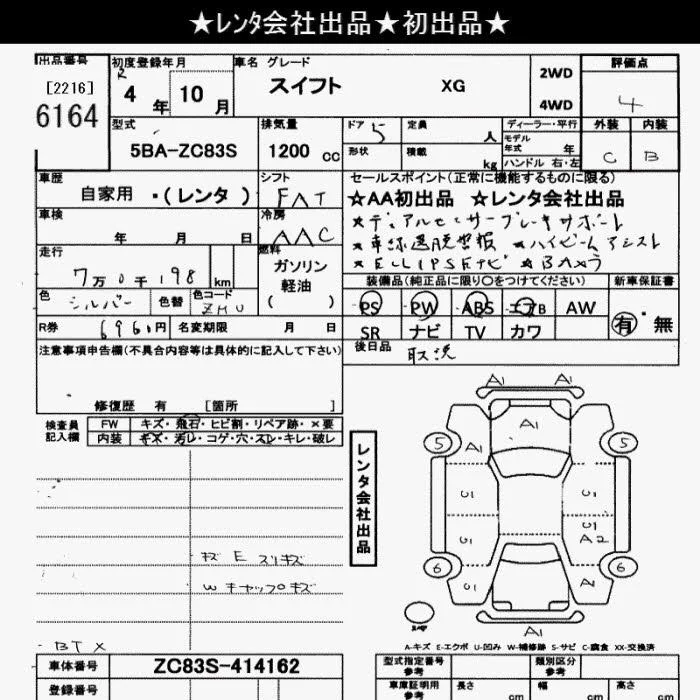 ★レンタ会社出品★初出品★
出品番号 初度登録年月 車名 グレード 評価点
[2216] R 4 年 10 月 スイフト XG 2WD 4
6164 4WD
型式 排気量 ドア 5 定員 人 ディーラー・平行 外装 内装
5BA-ZC83S 1200 cc 形状 積載 kg モデル年式 年 C B
ハンドル 右・左
車歴 シフト セールスポイント(正常に機能するものに限る)
自家用 ・(レンタ ) FAT ★AA初出品 ★レンタ会社出品
車検 年 月 日 冷房 AAC ★デュアルセンサーブレーキサポート
★車線逸脱警報 ★ハイビームアシスト
走行 7万0千198 km 燃料 ガソリン 軽油 ( ) ★ELLIPSEナビ ★BAカメラ
装備品(純正品に限り○をつけてください) 新車保証書
色 シルバー 色替 色コード ZMU PS PW ABS エアB AW 有・無
R券 6960円 名変期限 月 日 SR ナビ TV カワ
注意事項申告欄(不具合内容等は具体的に記入して下さい) 後日品 取説
修復歴 有 [箇所 ]
検査員記入欄 FW キズ・飛石・ヒビ割・リペア跡・×要
内装 キズ・汚レ・コゲ・穴・スレ・キレ・破レ
A1 A1
A1
5 A1 5
レンタ会社出品
U1 U1
U1
U1 A2
キズ E スリキズ
6 6
Wキャップキズ
U1 A1
A1
BTX
A-キズ E-エクボ U-凹み W-補修跡 S-サビ C-腐食 XX-交換済
車体番号 ZC83S-414162 型式指定番号 参考 類別区分 参考
登録番号 車庫証明用 参考 長さ cm 幅 cm 高さ cm